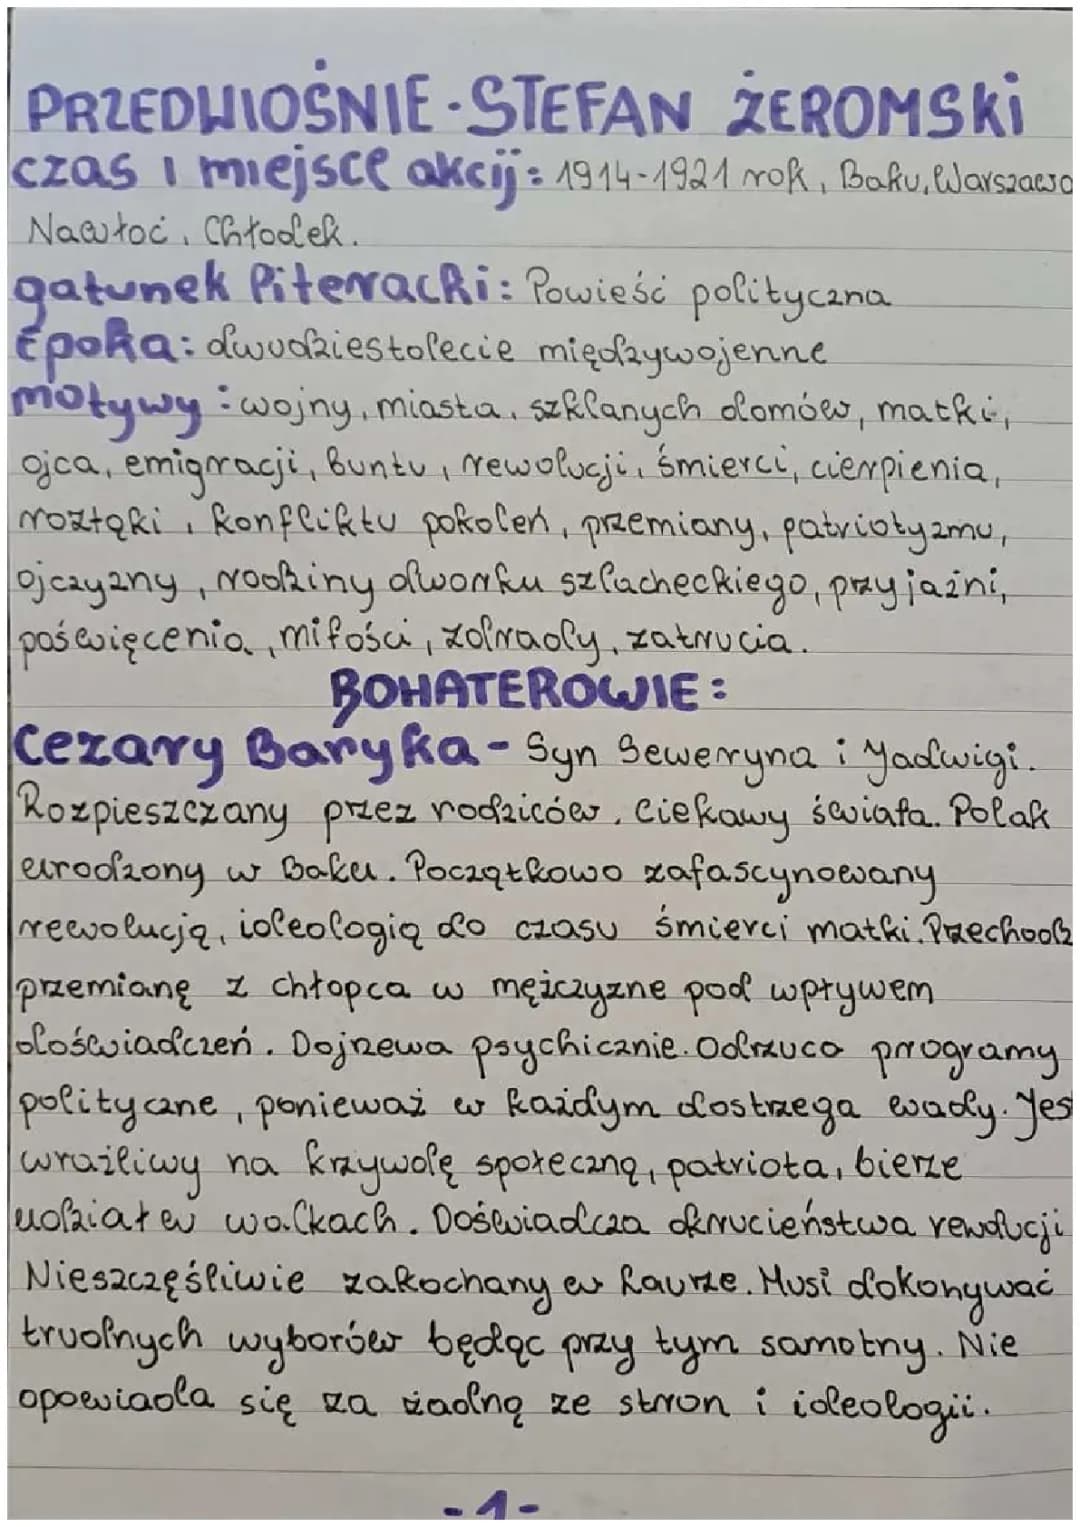 PRZEDWIOŚNIE - STEFAN ŻEROMSKI
czas i miejsce akcij: 1914-1921 rok, Baku, Warszawa
Nawłoć, Chłodek.
gatunek literacki: Powieść polityczna
Epoka: dwudziestolecie międzywojenne
motywy: wojny, miasta, szklanych domów, matki,
ojca, emigracji, buntu, rewolucji, śmierci, cierpienia,
rozłąki, konfliktu pokoleń, przemiany, patriotyzmu,
ojczyzny, rodziny dworku szlacheckiego, przyjaźni,
poświęcenia, miłości, zdrady, zatrucia.
BOHATEROWIE:
Cezary Baryka - Syn Seweryna i Jadwigi.
Rozpieszczany przez rodziców. Ciekawy świata. Polak
urodzony w Baku. Początkowo zafascynowany
rewolucją, ideologią do czasu śmierci matki. Przechodz
przemianę z chłopca w mężczyzne pod wpływem
doświadczeń. Dojrzewa psychicznie. Odrzuca programy
polityczne, ponieważ w każdym dostrzega wady. Jest
wrażliwy na krzywdę społeczną, patriota, bierze
udział w walkach. Doświadcza okrucieństwa rewolucji
Nieszczęśliwie zakochany w Laurze. Musi dokonywać
trudnych wyborów będąc przy tym samotny. Nie
opowiada się za żadną ze stron i ideologii.
-1-